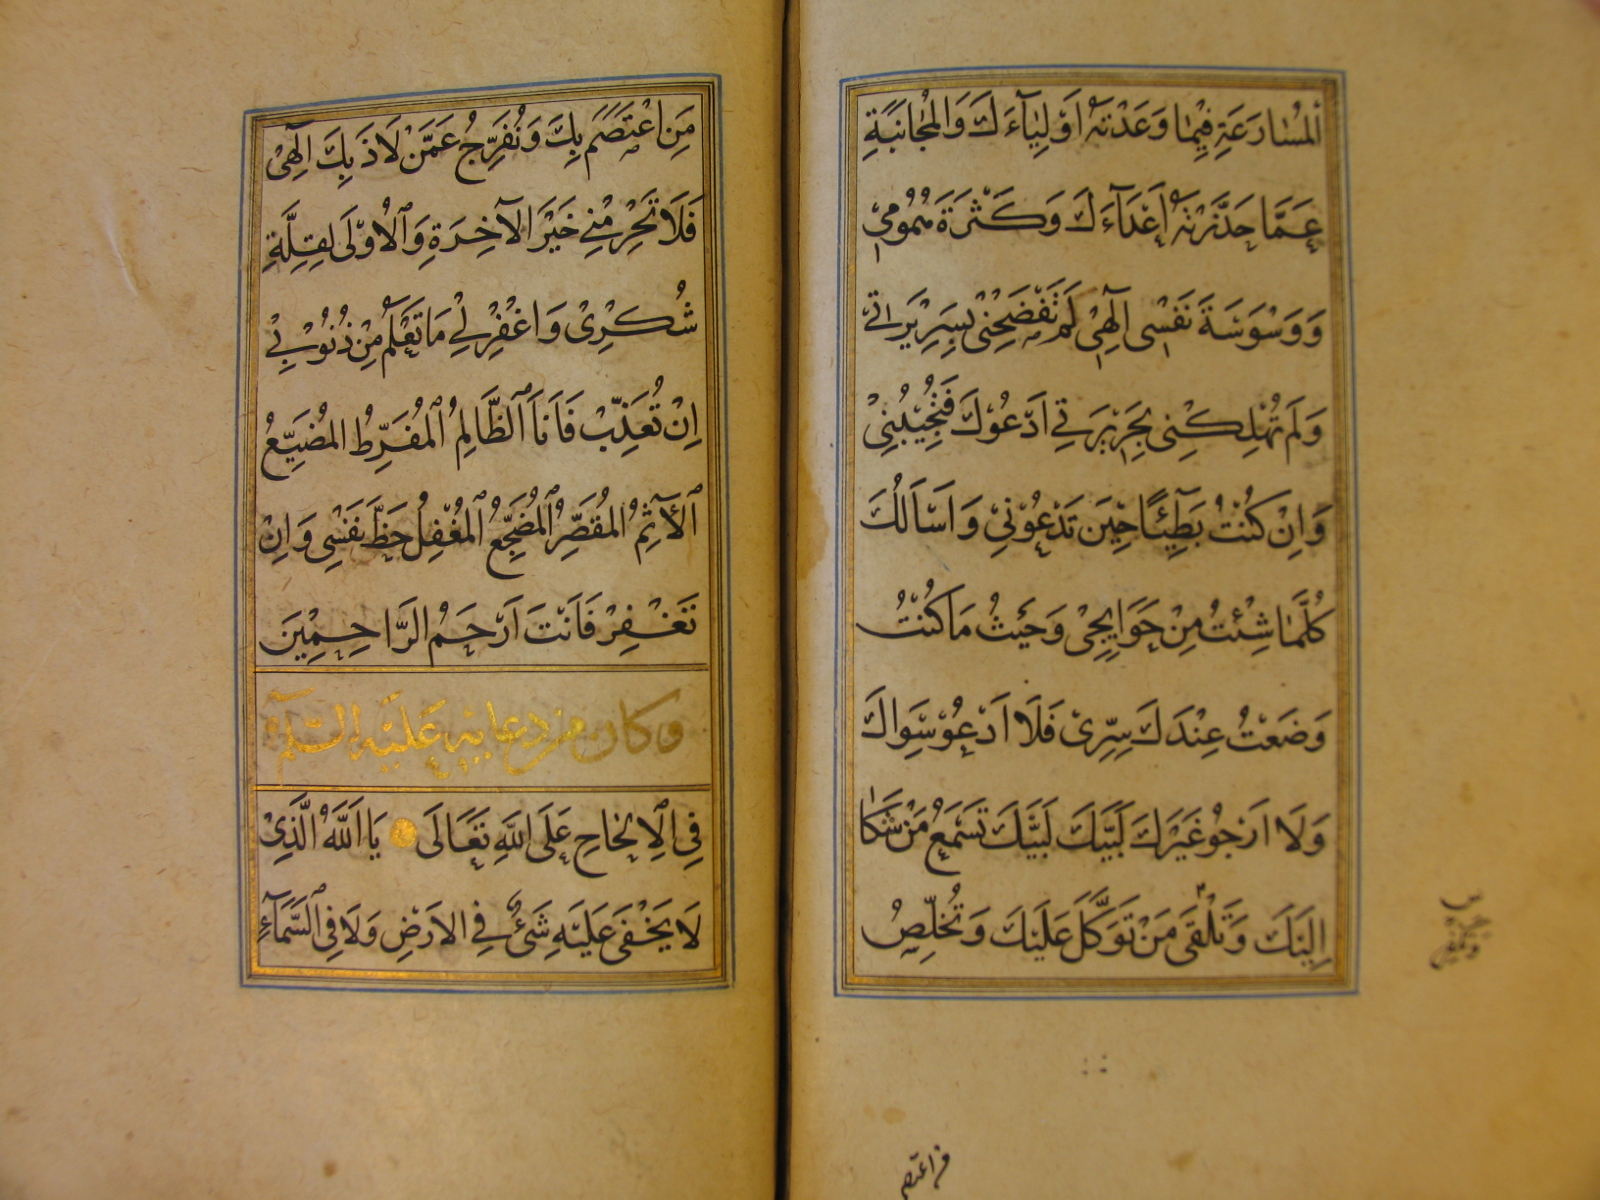 اَلْمُسَارَعَةِ فِيْمَا وَعَدْتَهُ اَوْلِيَآءَكَ وَالْمُجَانَبَةِ
عَمَّا حَذَّرْتَهُ اَعْدَآءَكَ وَكَثْرَةَ هُمُومِيْ
وَوَسْوَسَةَ نَفْسِى اِلٰهِيْ لَمْ تَفْضَحْنِى بِسَرِيْرَتِيْ
وَلَمْ تُهْلِكْنِى بِجَرِيْرَتِيْ اَدْعُوْكَ فَتُجِيْبُنِيْ
وَاِنْ كُنْتُ بَطِيْئًا حِيْنَ تَدْعُوْنِيْ وَاَسْاَلُكَ
كُلَّمَا شِئْتُ مِنْ حَوَايِجِيْ وَحَيْثُ مَا كُنْتُ
وَضَعْتُ عِنْدَكَ سِرِّىْ فَلَا اَدْعُوْ سِوَاكَ
وَلَا اَرْجُوْ غَيْرَكَ لَبَّيْكَ لَبَّيْكَ تَسْمَعُ مَنْ شَكَا
اِلَيْكَ وَتَلْقَى مَنْ تَوَكَّلَ عَلَيْكَ وَتُخَلِّصُ
مَنِ اعْتَصَمَ بِكَ وَتُفَرِّجُ عَمَّنْ لَاذَ بِكَ اِلٰهِيْ
فَلَا تَحْرِمْنِيْ خَيْرَ الْآخِرَةِ وَالْاُوْلَى لِقِلَّةِ
شُكْرِىْ وَاغْفِرْ لِيْ مَا تَعْلَمُ مِنْ ذُنُوْبِيْ
اِنْ تُعَذِّبْ فَاَنَا الظَّالِمُ الْمُفَرِّطُ الْمُضَيِّعُ
الْآثِمُ الْمُقَصِّرُ الْمُضَجِّعُ الْمُغْفِلُ حَظَّ نَفْسِى وَاِنْ
تَغْفِرْ فَاَنْتَ اَرْحَمُ الرَّاحِمِيْنَ
وكان من دعايه عَلَيْهِ السَّلَام
فِى الْاِلْحَاحِ عَلَى اللّٰهِ تَعَالَى يَا اَللّٰهُ الَّذِىْ
لَا يَخْفَى عَلَيْهِ شَىْءٌ فِى الْاَرْضِ وَلَا فِى السَّمَآءِ